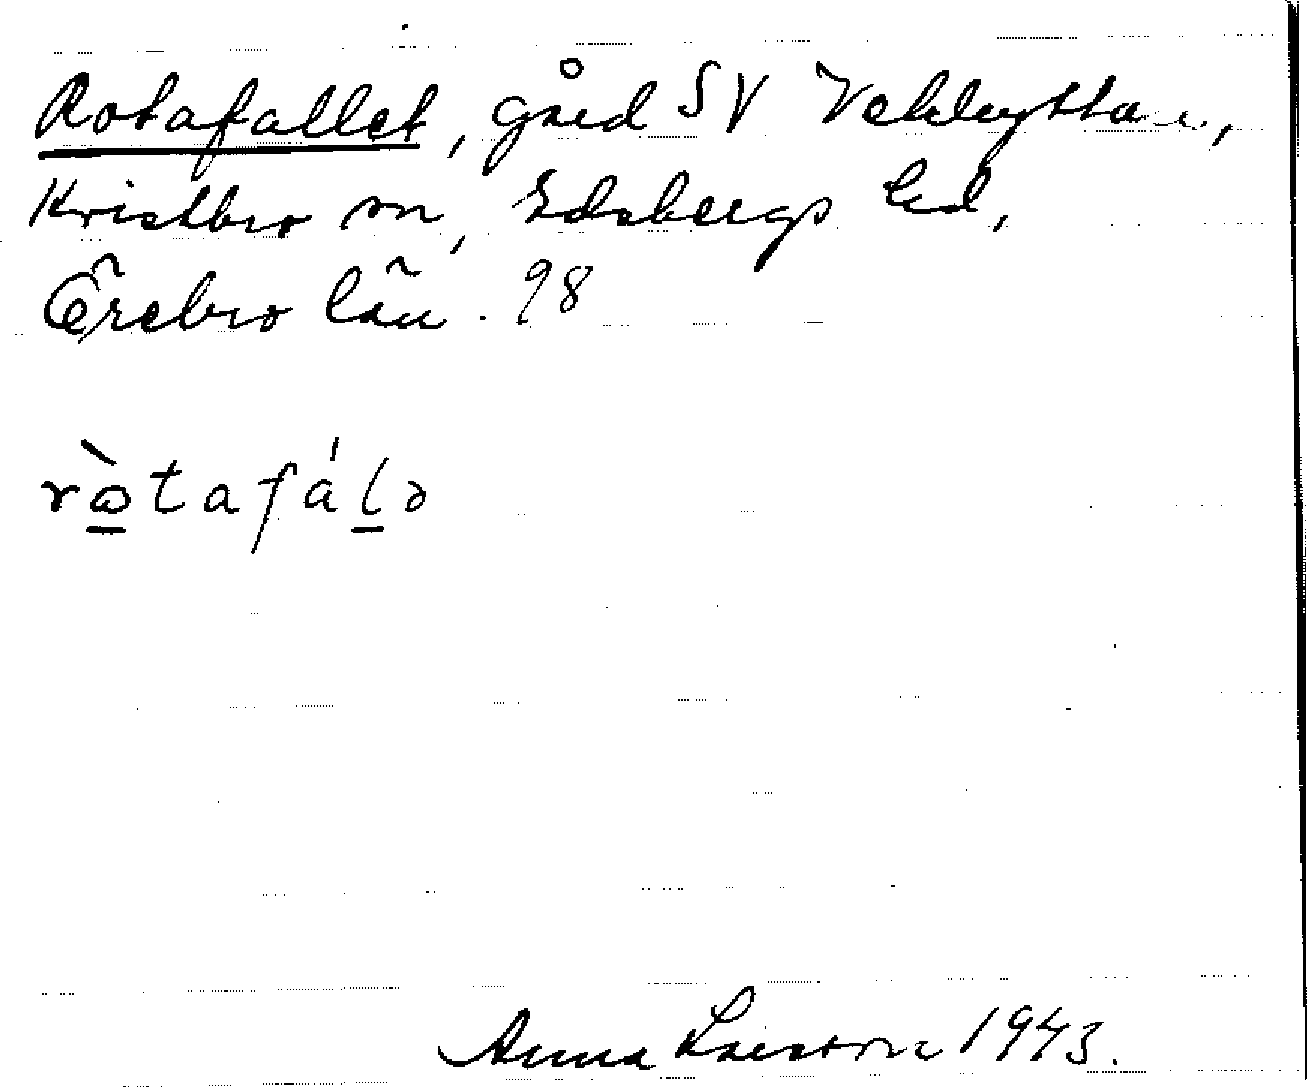 Rotafallet, gård SV Vekhyttan,
Kvistbro sn, Edsbergs hd,
Örebro län. 98
rὼ̲tafál̲ə
Anna Larsson 1943.